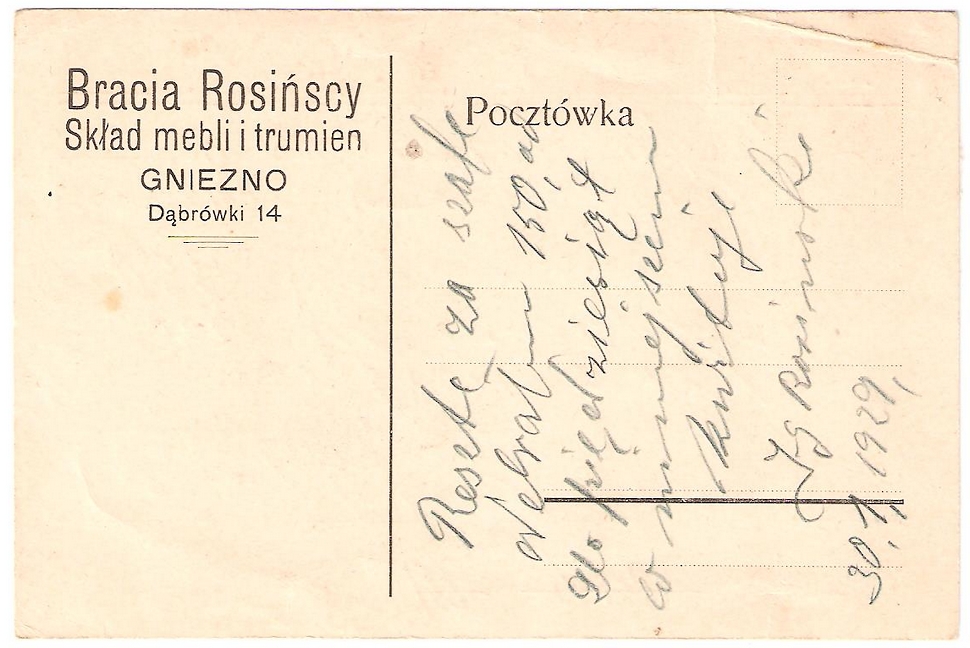 Bracia Rosińscy
Skład mebli i trumien
GNIEZNO
Dąbrówki 14
Pocztówka
Reszte za szafe
odebrałem 150,
Sto pięćdziesiąt
w
kwituje
Ig Rosiński
1929,